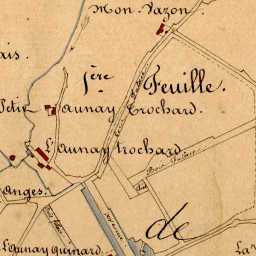 Mon Vazon
ais.
1ère Feuille.
Petit Launay Trochard
L'aunay trochard
Anges.
de
L'aunay Guinard
La